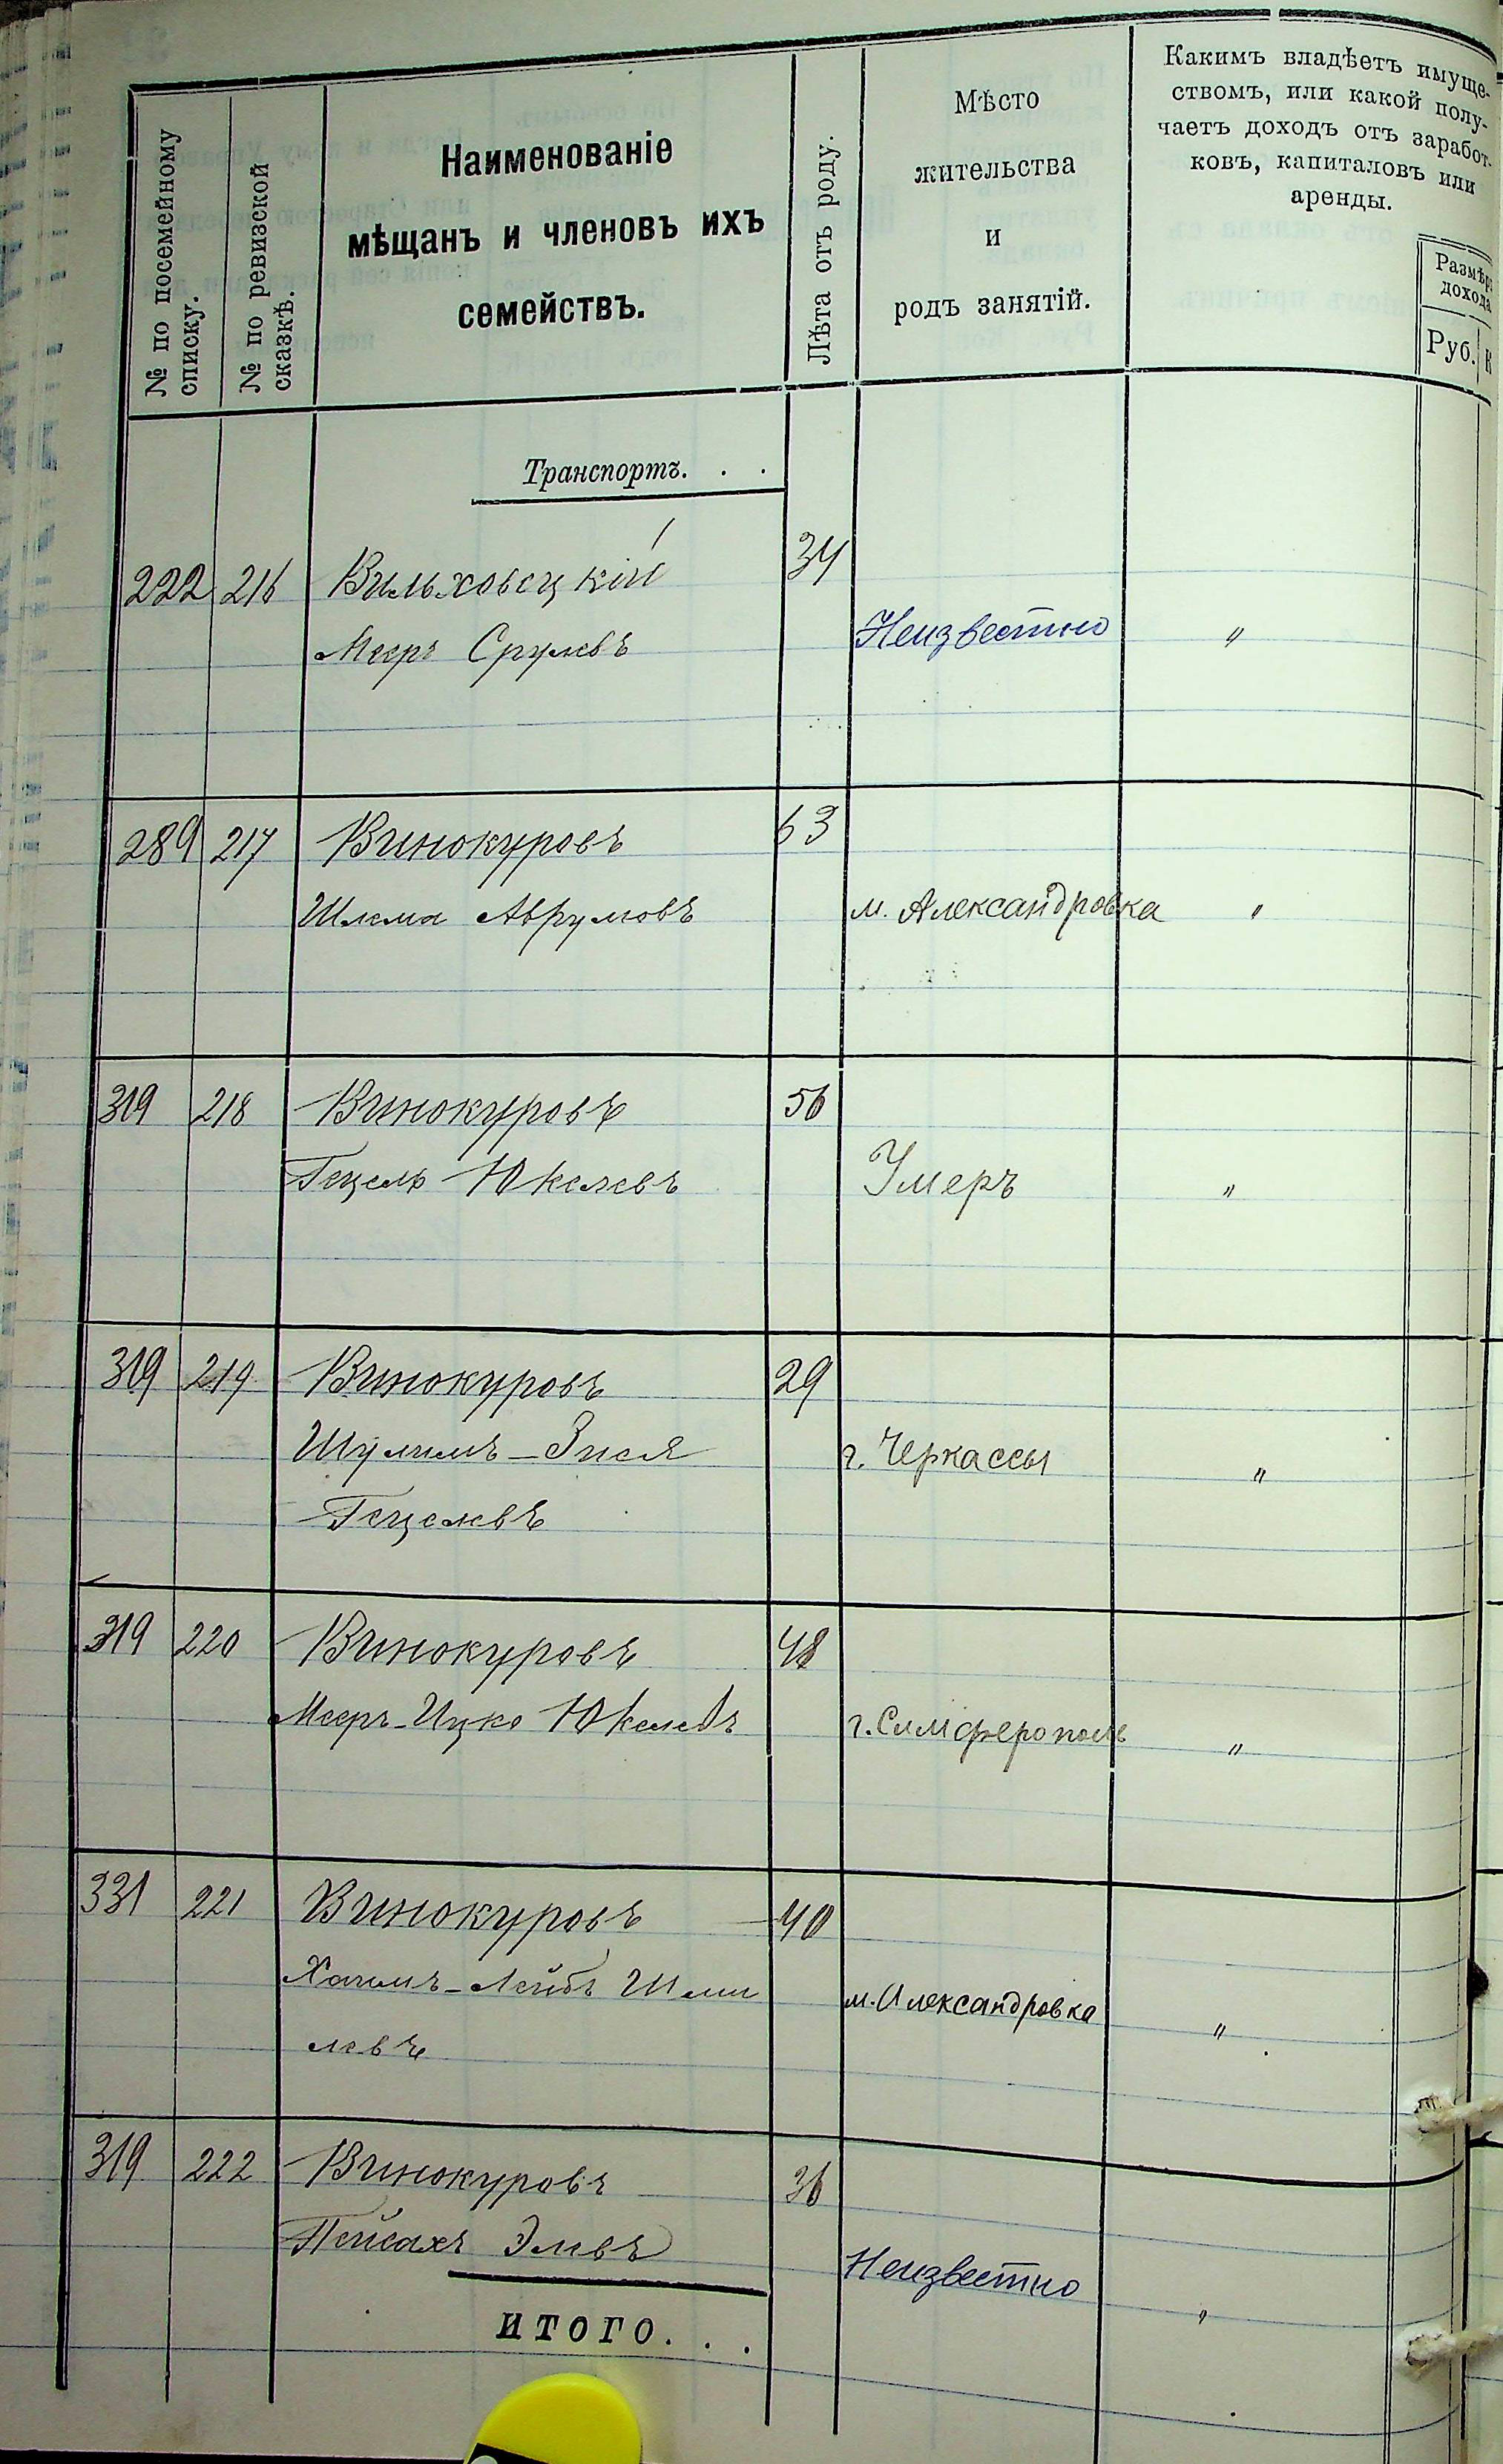 № по посемейному
списку.
№ по ревизской
сказкѣ.
Наименованіе
мѣщанъ и членовъ ихъ
семействъ.
Лѣта отъ роду.
Мѣсто
жительства
и
родъ занятій.
Какимъ владѣетъ имуще-
ствомъ, или какой полу-
чаетъ доходъ отъ заработ-
ковъ, капиталовъ или
аренды.
Размѣръ
дохода
Руб.
К
Транспортъ. . .
222 216 Вильховецкій 34
Мееръ Срулевъ Неизвестно "
289 217 Винокуровъ 63
Шлема Аврумовъ м. Александровка "
319 218 Винокуровъ 56
Гецель Юкелевъ Умеръ "
319 219 Винокуровъ 29
Шулимъ-Зися г. Черкассы "
Гецелевъ
319 220 Винокуровъ 48
Мееръ-Ицко Юкелевъ г. Симферополь "
331 221 Винокуровъ 40
Хаимъ-Лейбъ Шми м. Александровка "
левъ
319 222 Винокуровъ 36
Пейсахъ Элевъ Неизвестно "
ИТОГО. . .